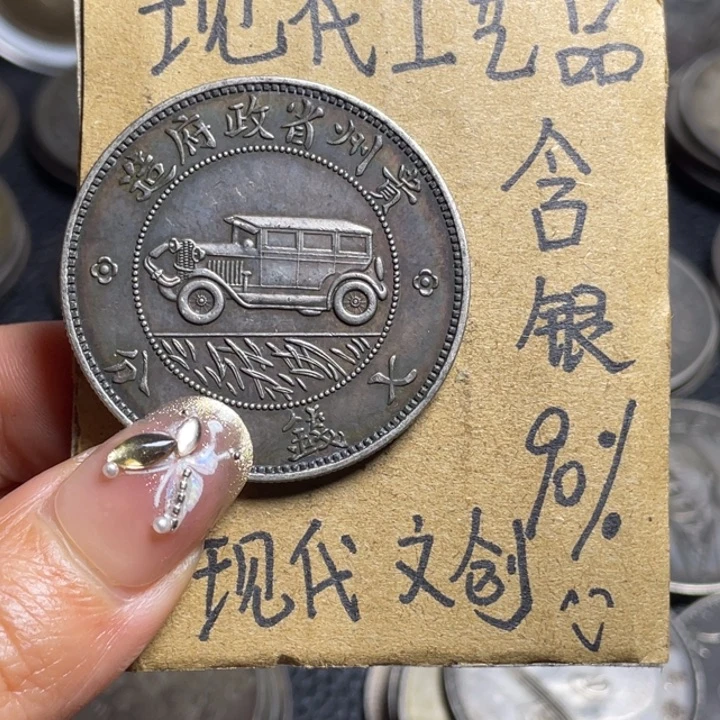 现代工艺品
貴州省政府造
七錢分
含银90%
现代文创